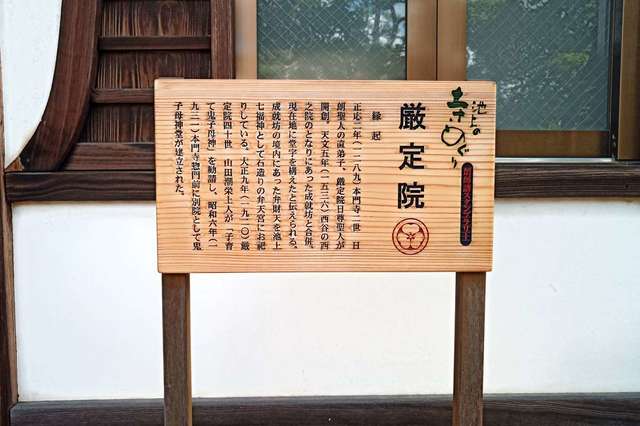 池上の
寺めぐり
厳定院
縁起
正応二年（一二八九）本門寺二世　日
朗聖人の直弟子、厳定院日尊聖人が
開創。天文五年（一五三六）西谷の西
之院のとなりにあった成就坊と合併、
現在地に堂宇を構えたと伝えられる。
成就坊の境内にあった弁財天を池上
七福神として石造りの弁天宮にお祀
りしている。大正九年（一九二〇）厳
定院四十世　山田潮榮上人が「子育
て鬼子母神」を勧請し、昭和六年（一
九三一）本門寺総門前に別院として鬼
子母神堂が建立された。